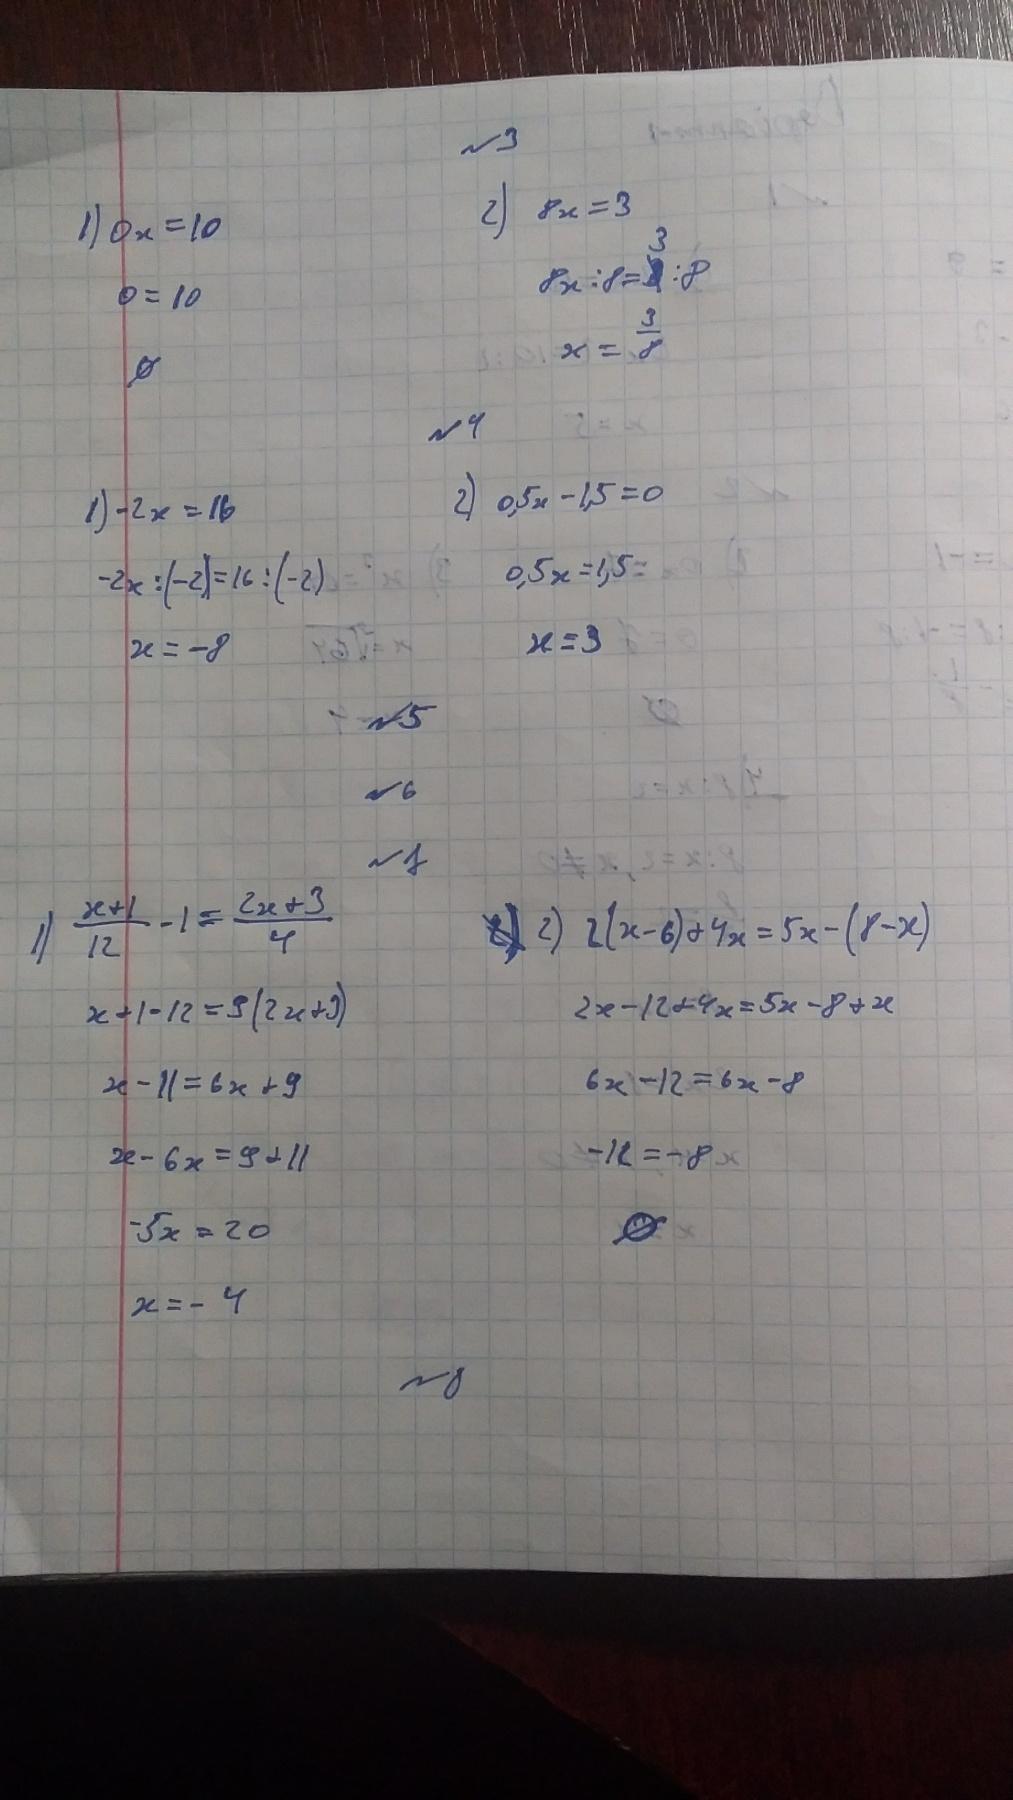 №3
1) 0x = 10
0 = 10
∅
2) 8x = 3
8x : 8 = 3 : 8
x = 3/8
№4
1) -2x = 16
-2x : (-2) = 16 : (-2)
x = -8
2) 0,5x - 1,5 = 0
0,5x = 1,5 =
x = 3
№5
№6
№7
1) (x+1)/12 - 1 = (2x+3)/4
x + 1 - 12 = 3(2x+3)
x - 11 = 6x + 9
x - 6x = 9 + 11
-5x = 20
x = - 4
2) 2(x-6) + 4x = 5x - (8-x)
2x - 12 + 4x = 5x - 8 + x
6x - 12 = 6x - 8
-12 = -8
∅
№8